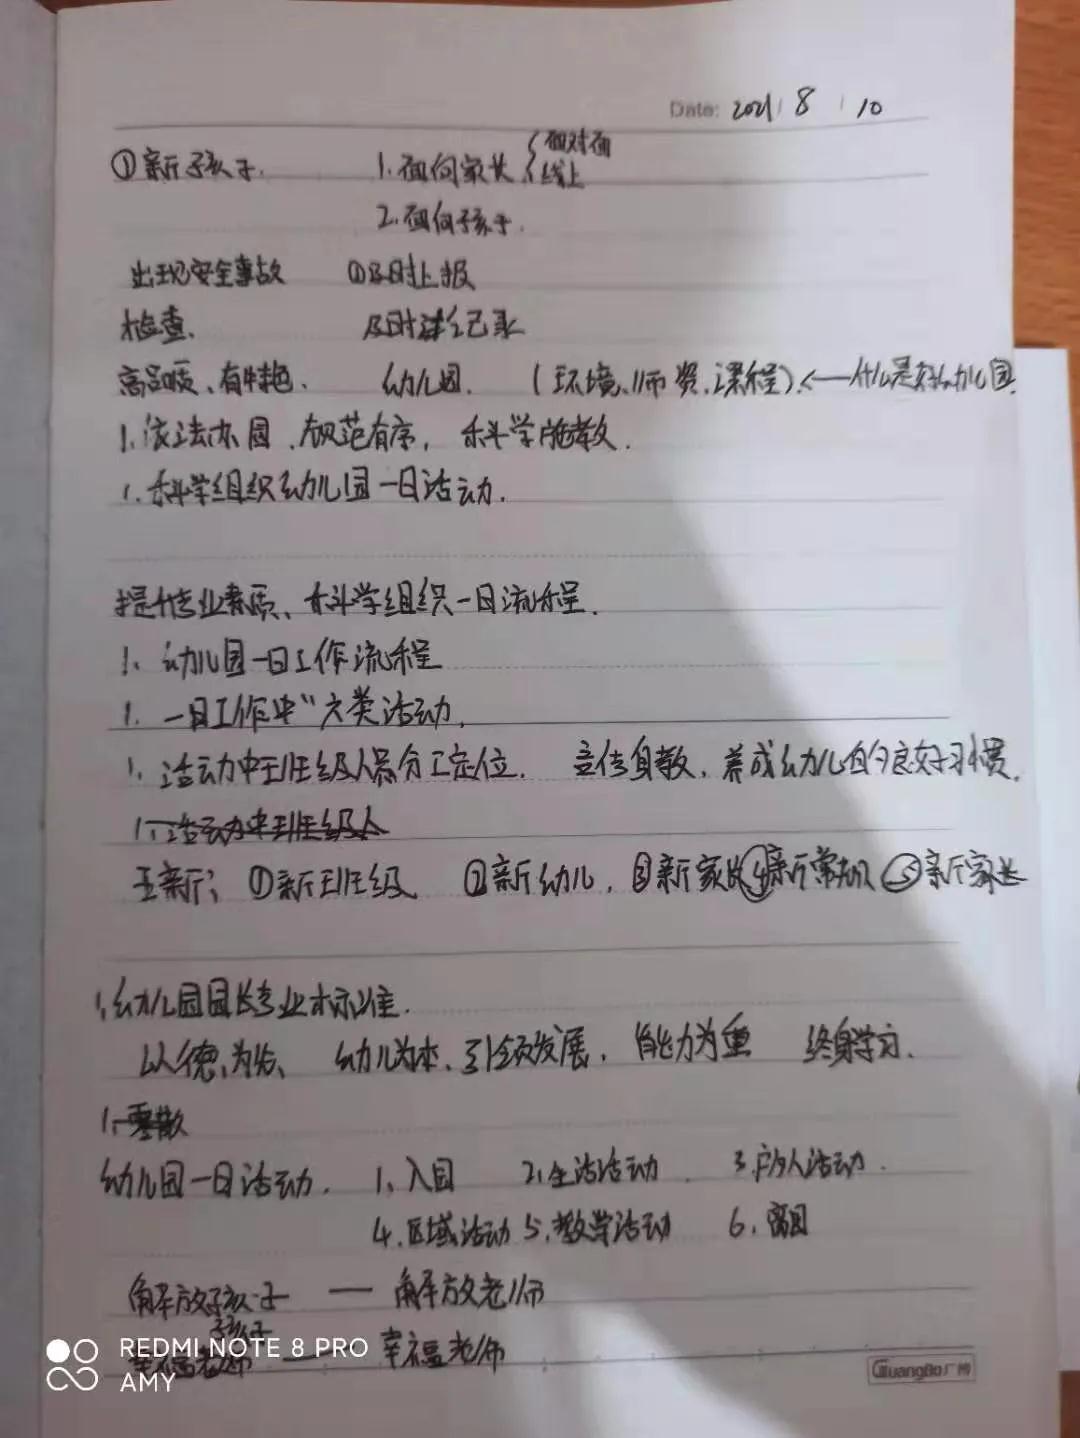 Date: 2021 8 10
①新孩子. 1.面向家长 { 面对面
线上
2.面向孩子.
出现安全事故 ①及时上报
检查. 及时进行记录
高品质、有特色. 幼儿园. (环境、师资、课程).←什么是好幼儿园.
1.依法办园、规范有序, 科学施教.
1.科学组织幼儿园一日活动.
提升专业素质、科学组织一日流程.
1、幼儿园一日工作流程
1. 一日工作中"六类活动.
1. 活动中班级人员分工定位. 言传身教、养成幼儿的良好习惯.
1、活动中班级人
五新: ①新班级 ②新幼儿, ③新家 ④新常规 ⑤新家长
1,幼儿园园长专业标准.
以德为先、 幼儿为本、引领发展、 能力为重 终身学习.
1、零散
幼儿园一日活动. 1、入园 2,生活活动 3.户外活动.
4.区域活动 5.教学活动 6.离园
解放孩子 — 解放老师
孩子
幸福老师 — 幸福老师
REDMI NOTE 8 PRO
AMY
GuangBo广博